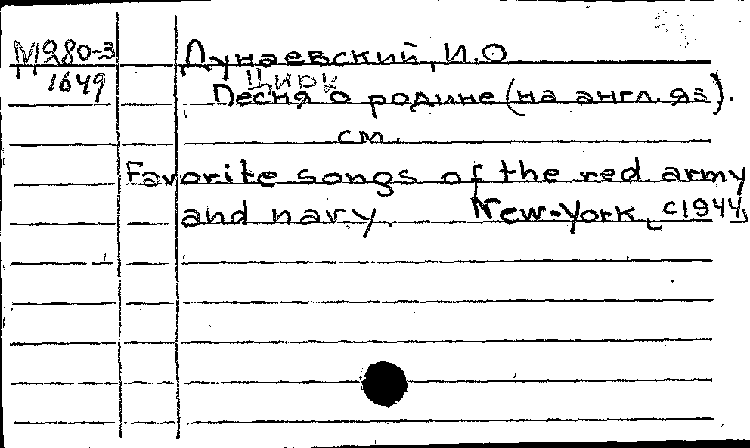 М280-3 Дунаевский, И.О
1649 Цирк
Песня о родине (на англ. яз).
см.
Favorite songs of the red army
and navy. New-York, c1944,